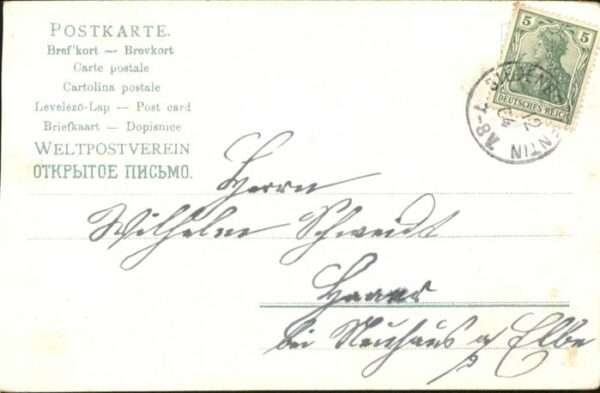 POSTKARTE.
Bref'kort — Brevkort
Carte postale
Cartolina postale
Levelező-Lap — Post card
Briefkaart — Dopisnice
WELTPOSTVEREIN
ОТКРЫТОЕ ПИСЬМО.
5 5
DEUTSCHES REICH
7-8
Herrn
Wilhelm Schwedt
Haar
bei Neuhaus a/ Elbe